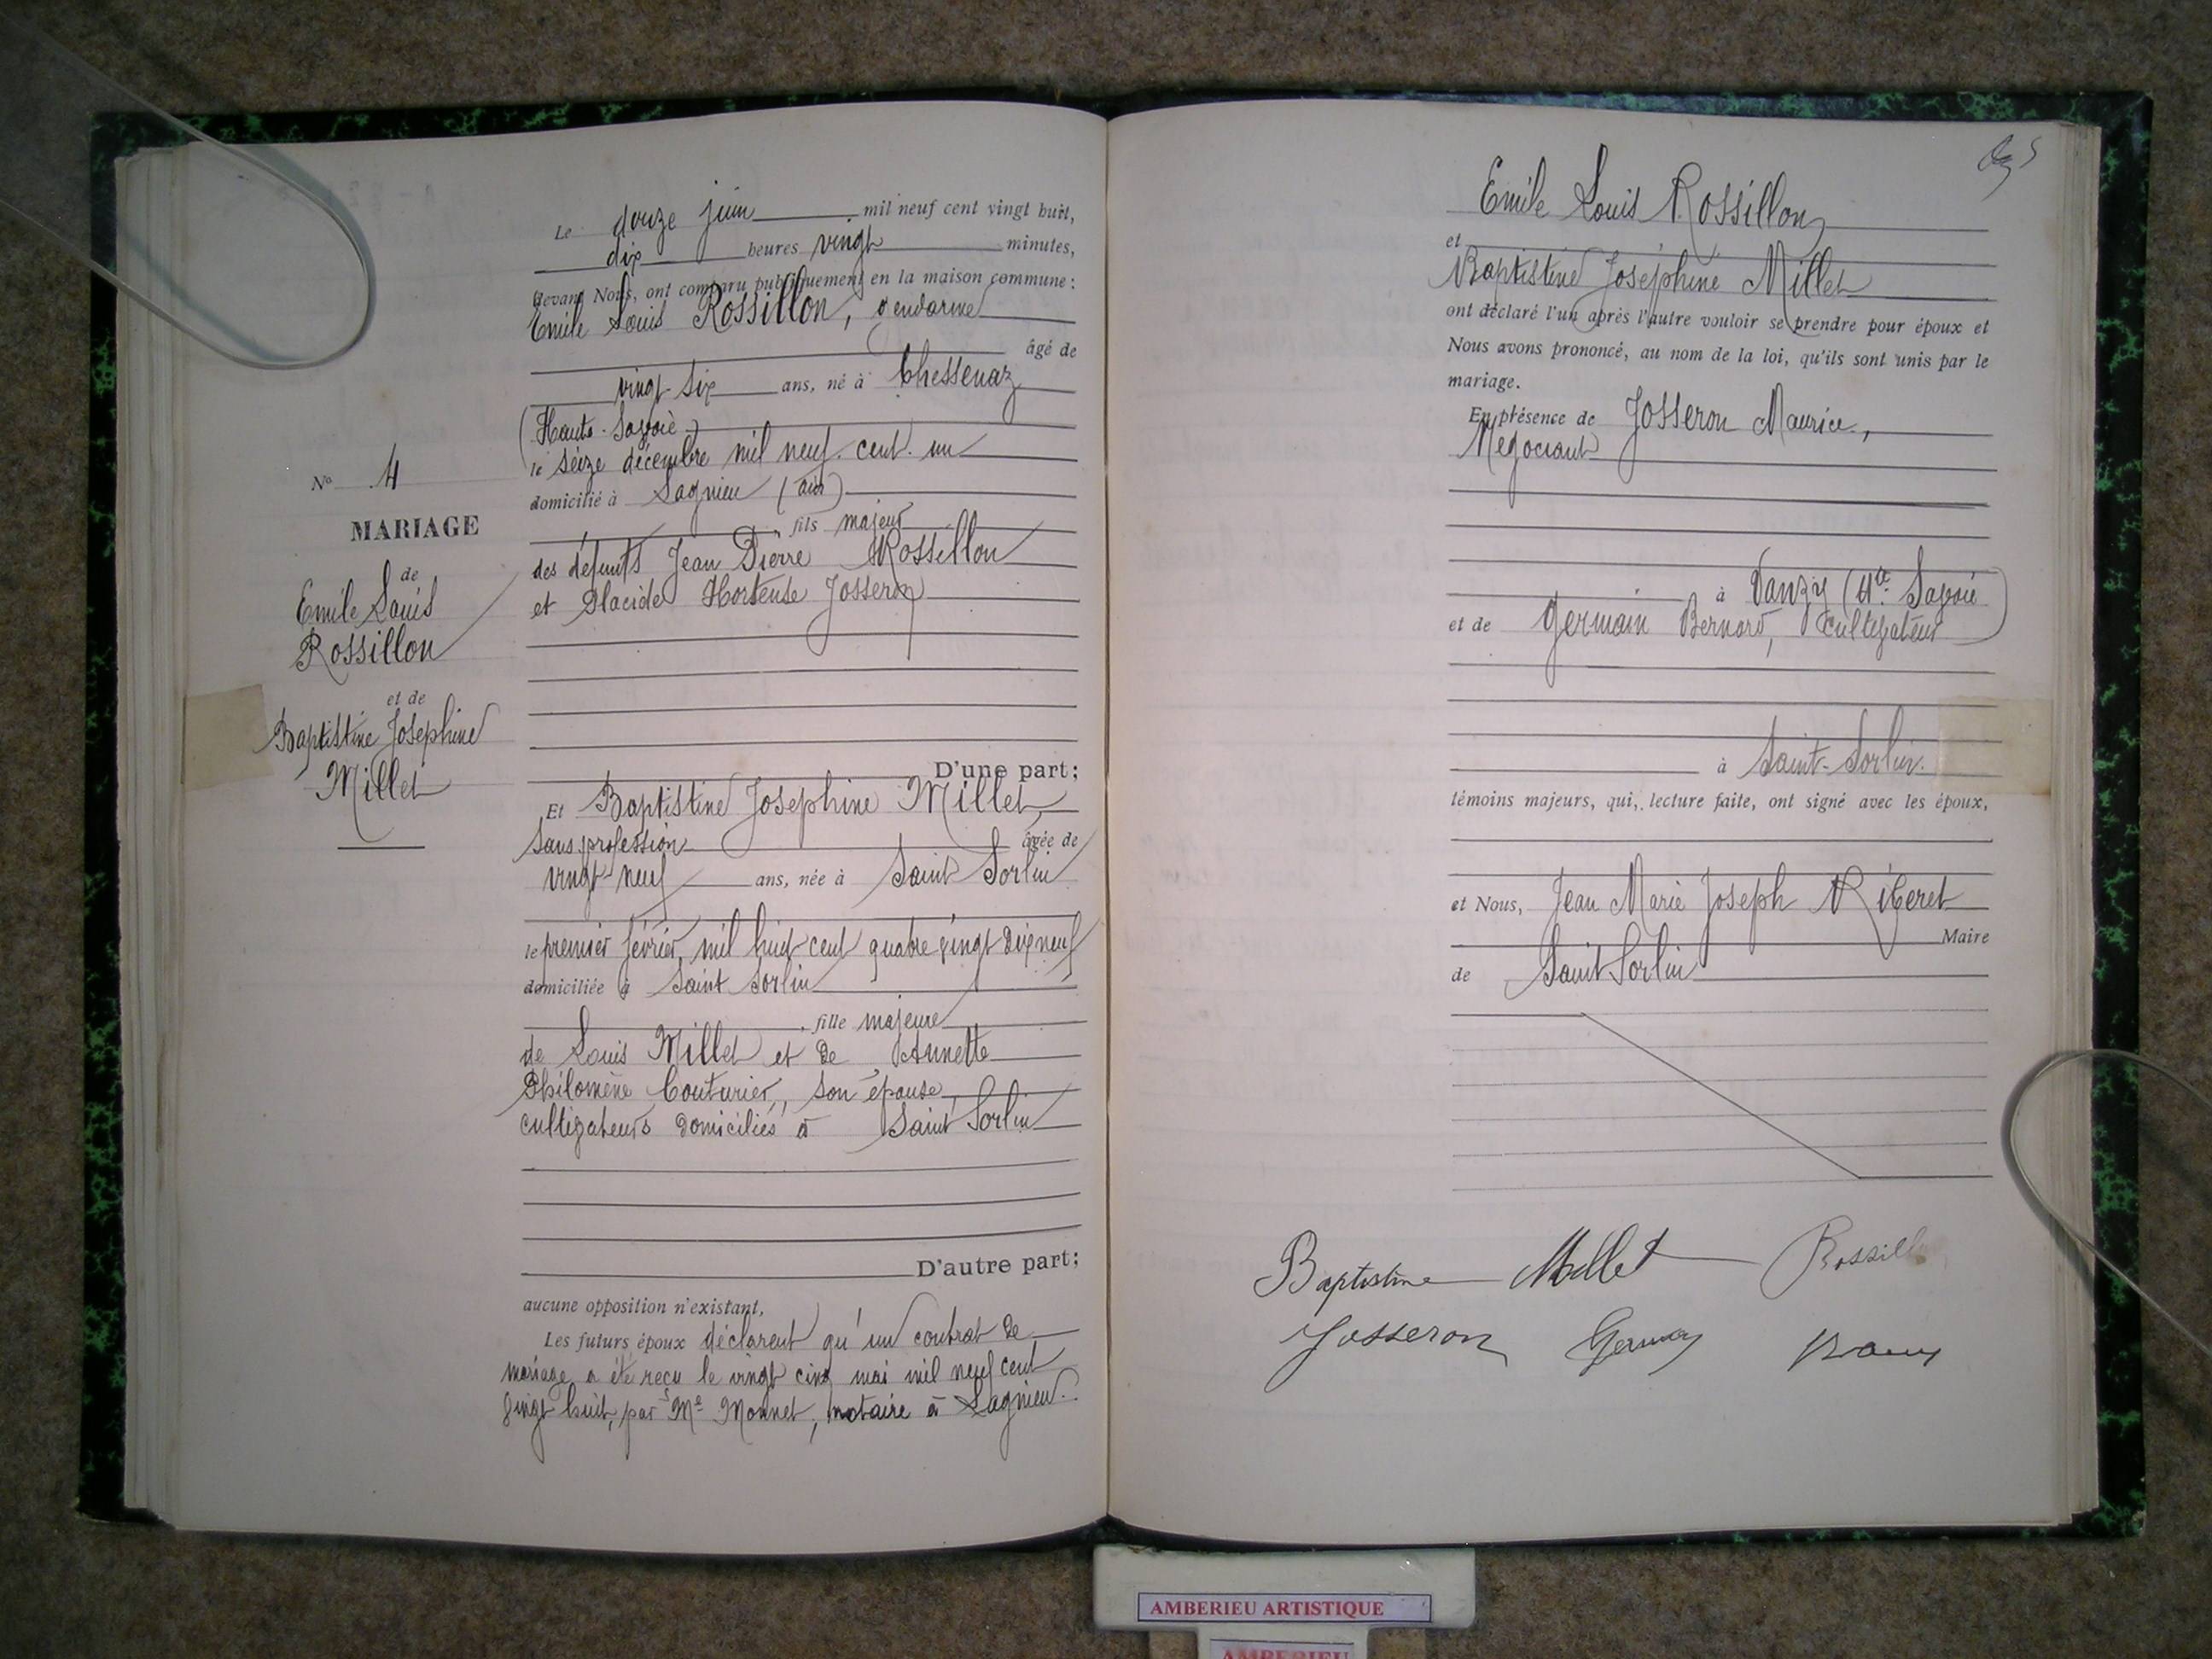 N° 4
MARIAGE
de
Emile Louis
Rossillon
et de
Baptistine Josephine
Millet
Le douze juin mil neuf cent vingt huit,
dix heures vingt minutes,
devant Nous, ont comparu publiquement en la maison commune :
Emile Louis Rossillon, gendarme
âgé de
vingt six ans, né à Chessenaz
(Haute-Savoie)
le seize décembre mil neuf cent un
domicilié à Lagnieu (ain)
, fils majeur
des défunts Jean Pierre Rossillon
et Placide Hortense Josseron
D'une part;
Et Baptistine Josephine Millet,
sans profession âgée de
vingt-neuf ans, née à Saint Sorlin
le premier février mil huit cent quatre vingt dix neuf
domiciliée à Saint Sorlin
, fille majeure
de Louis Millet et de Annette
Philomène Couturier, son épouse,
cultivateurs domiciliés à Saint Sorlin
D'autre part;
aucune opposition n'existant,
Les futurs époux déclarent qu'un contrat de
mariage a été reçu le vingt cinq mai mil neuf cent
vingt huit, par Me Monnet, notaire à Lagnieu.
Emile Louis Rossillon
et
Baptistine Joséphine Millet
ont déclaré l'un après l'autre vouloir se prendre pour époux et
Nous avons prononcé, au nom de la loi, qu'ils sont unis par le
mariage.
En présence de Josseron Maurice,
Négociant
à Vanzy (Hte Savoie)
et de Germain Bernard, Cultivateur
à Saint-Sorlin.
témoins majeurs, qui, lecture faite, ont signé avec les époux,
et Nous, Jean Marie Joseph Riberet
Maire
de Saint Sorlin
Baptistine Millet Rossill
Josseron
AMBERIEU ARTISTIQUE
AMBERIEU